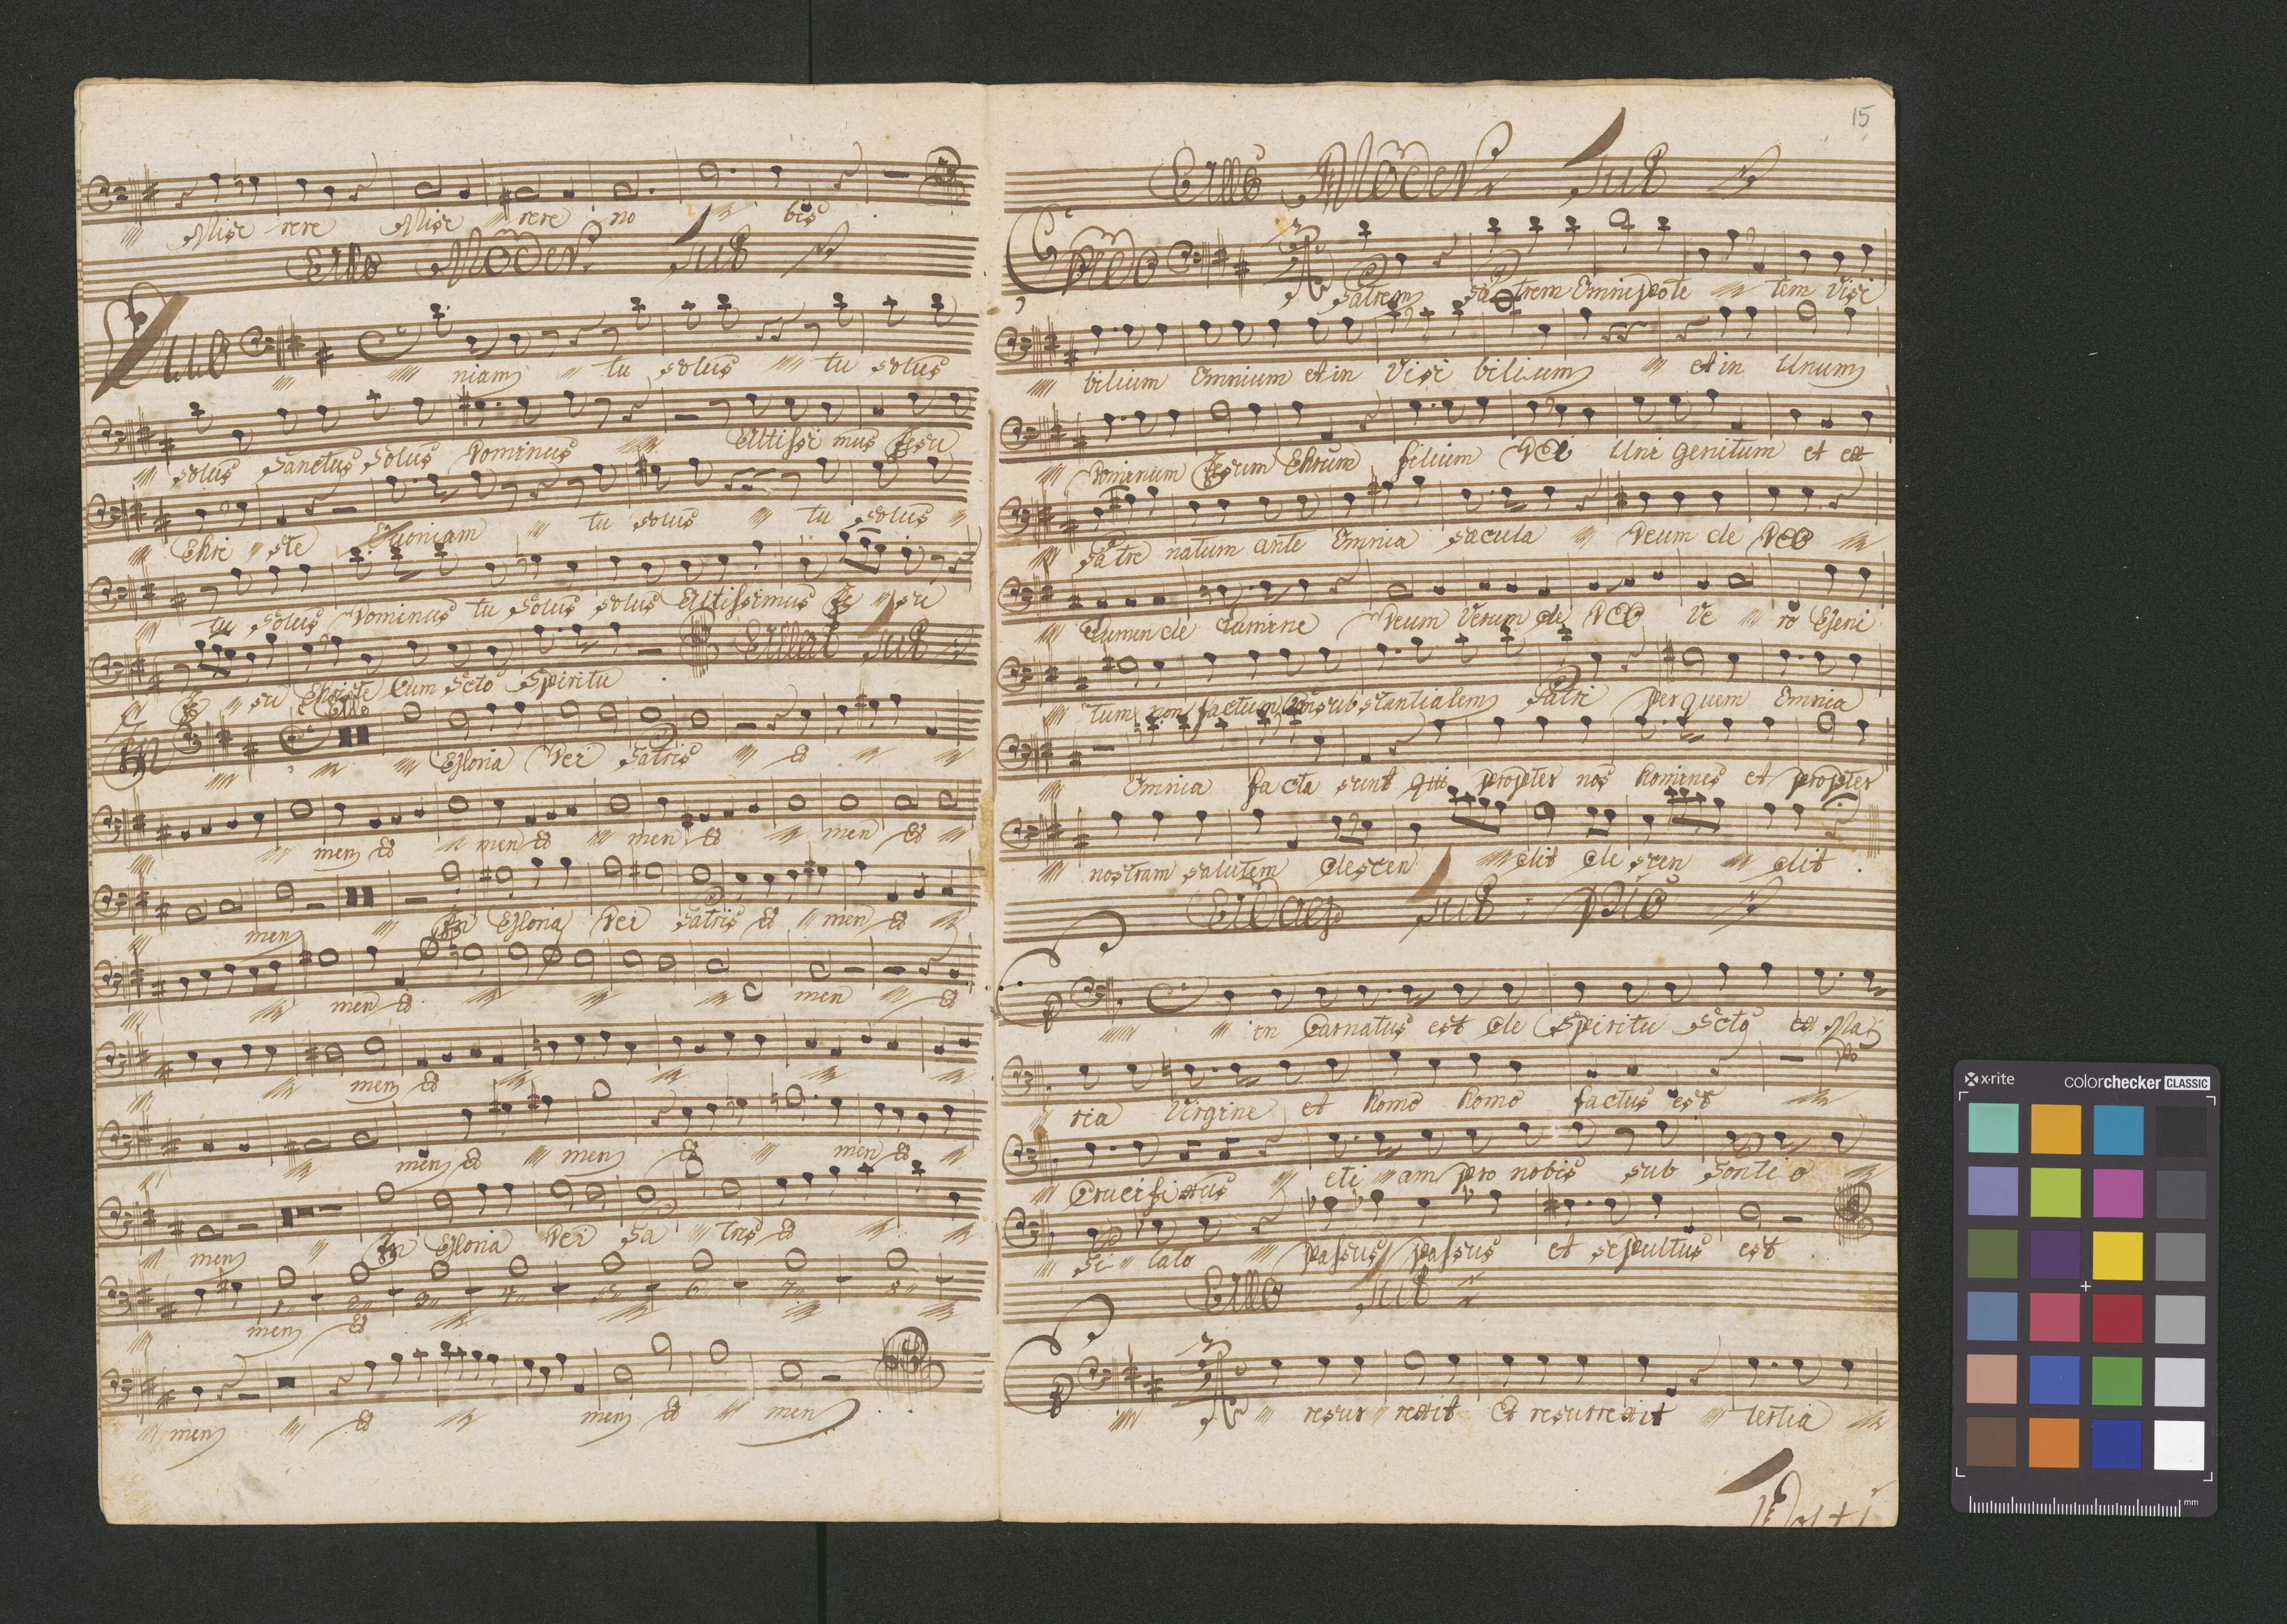 Mise rere Mise rere no bis
Allo Moder Tutti
Quo niam tu solus tu solus
solus Sanctus solus Dominus Altissi mus Jesu
Chri ste Quoniam tu solus tu solus
tu solus Dominus tu solus solus Altissimus Je su
Allat
Je su Christe Cum Scto Spiritu
Allo
In Gloria Dei Patris A
men A men A men A men A
men In Gloria Dei Patris A men A
men A men A
men A
men A men A men A
men In Gloria Dei Pa tris A
1 2 3 4 5 6 7 8
men A
men A men A men
15
Allo Moder
Credo Patrem Patrem Omnipote tem Visi
bilium Omnium et in Visi bilium et in Unum
Dominum Jesum Chrum filium Dei Uni genitum et ex
Patre natum ante Omnia sacula Deum de Deo
Lumen de Lumine Deum Verum de Deo Ve ro Geni
tum non factum Consubstantialem Patri per quem Omnia
Omnia facta sunt qui propter nos homines et propter
nostram salutem descen dit descen dit
Et in Carnatus est de Spiritu Scto ex Ma
ria Virgine et homo homo factus est
Crucifixus eti am pro nobis sub Pontio
Pi lato passus passus et sepultus est
Allo
Et resur rexit Et resurrexit tertia
Volti
x·rite
colorchecker CLASSIC
mm